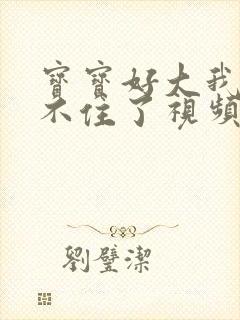 寶寶好大我
不住了視頻
劉璧潔